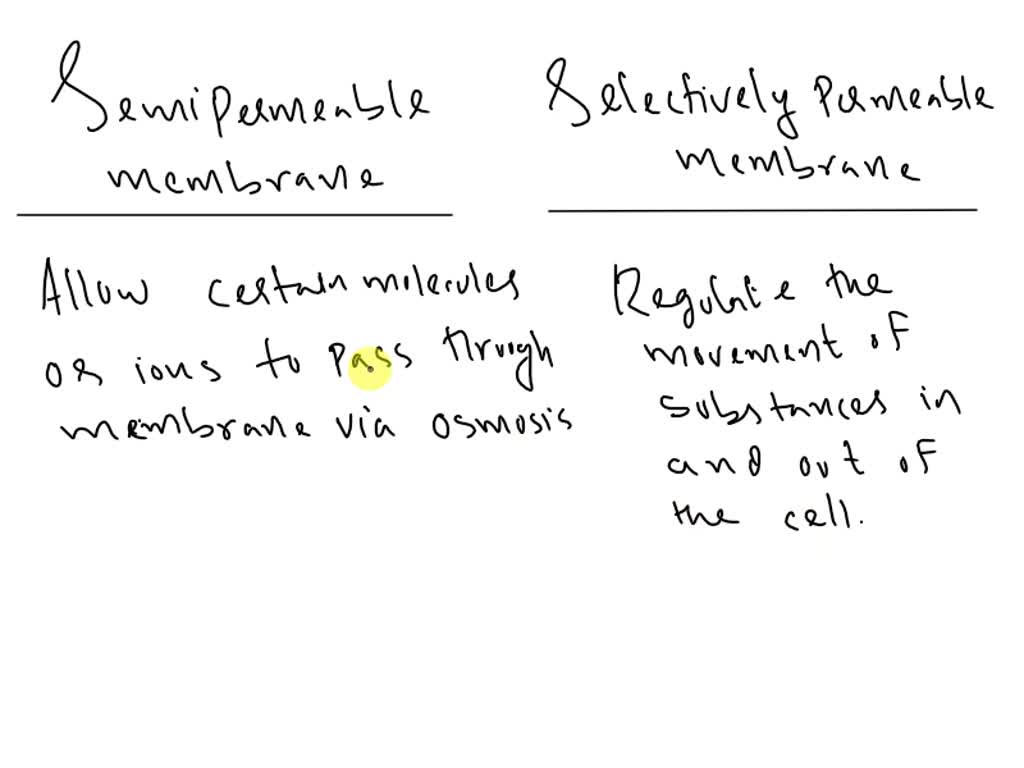 Semipermeable
membrane
Selectively Permeable
membrane
Allow certain molecules
or ions to pass through
membrane via osmosis
Regulate the
movement of
substances in
and out of
the cell.